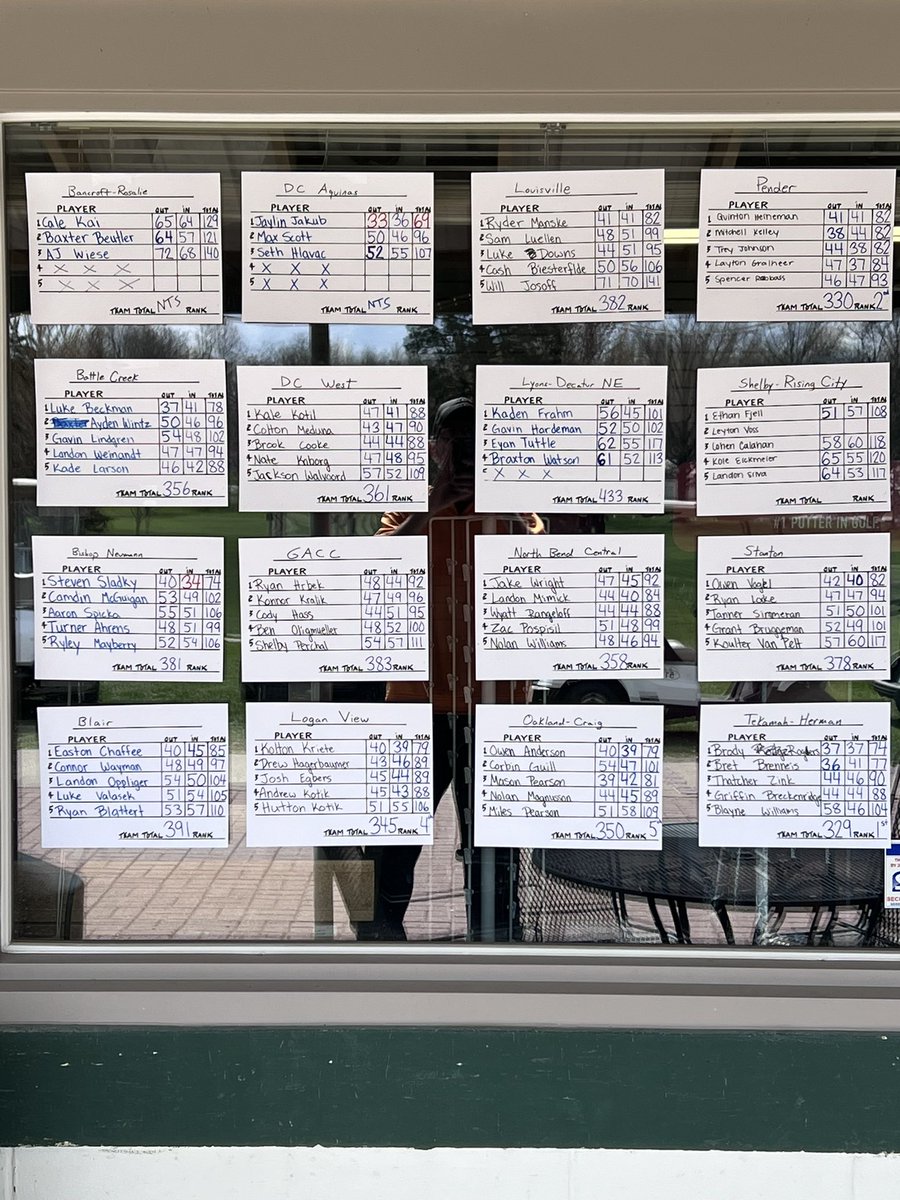 Bancroft-Rosalie
PLAYER OUT IN TOTAL
1 Cale Kai 65 64 129
2 Baxter Beutler 64 57 121
3 AJ Wiese 72 68 140
4 X X X
5 X X X
TEAM TOTAL NTS RANK
DC Aquinas
PLAYER OUT IN TOTAL
1 Jaylin Jakub 33 36 69
2 Max Scott 50 46 96
3 Seth Hlavac 52 55 107
4 X X X
5 X X X
TEAM TOTAL NTS RANK
Louisville
PLAYER OUT IN TOTAL
1 Ryder Manske 41 41 82
2 Sam Luellen 48 51 99
3 Luke Downs 44 51 95
4 Cash Biesterflde 50 56 106
5 Will Josoff 71 70 141
TEAM TOTAL 382 RANK
Pender
PLAYER OUT IN TOTAL
1 Quinton Heineman 41 41 82
2 Mitchell Kelley 38 44 82
3 Trey Johnson 44 38 82
4 Layton Gralheer 47 37 84
5 Spencer 46 47 93
TEAM TOTAL 330 RANK 2nd
Battle Creek
PLAYER OUT IN TOTAL
1 Luke Beckman 37 41 78
2 Ayden Wintz 50 46 96
3 Gavin Lindgren 54 48 102
4 Landon Weinandt 47 47 94
5 Kade Larson 46 42 88
TEAM TOTAL 356 RANK
DC West
PLAYER OUT IN TOTAL
1 Kale Kotil 47 41 88
2 Colton Meduna 43 47 90
3 Brook Cooke 44 44 88
4 Nate Kiborg 47 48 95
5 Jackson Walvoord 57 52 109
TEAM TOTAL 361 RANK
Lyons-Decatur NE
PLAYER OUT IN TOTAL
1 Kaden Frahm 56 45 101
2 Gavin Hardeman 52 50 102
3 Evan Tuttle 62 55 117
4 Braxton Watson 61 52 113
5 X X X
TEAM TOTAL 433 RANK
Shelby-Rising City
PLAYER OUT IN TOTAL
1 Ethan Fjell 51 57 108
2 Leyton Voss
3 Cohen Calahan 58 60 118
4 Kole Eickmeier 65 55 120
5 Landon Silva 64 53 117
TEAM TOTAL RANK
#1 PUTTER IN GOLF.
Bishop Neumann
PLAYER OUT IN TOTAL
1 Steven Sladky 40 34 74
2 Camdin McGuigan 53 49 102
3 Aaron Spicka 55 51 106
4 Turner Ahrens 48 51 99
5 Ryley Mayberry 52 54 106
TEAM TOTAL 381 RANK
GACC
PLAYER OUT IN TOTAL
1 Ryan Hrbek 48 44 92
2 Konnor Kralik 47 49 96
3 Cody Hass 44 51 95
4 Ben Oligmueller 48 52 100
5 Shelby Perchal 54 57 111
TEAM TOTAL 383 RANK
North Bend Central
PLAYER OUT IN TOTAL
1 Jake Wright 47 45 92
2 Landon Mimick 44 40 84
3 Wyatt Rangeloff 44 44 88
4 Zac Pospisil 51 48 99
5 Nolan Williams 48 46 94
TEAM TOTAL 358 RANK
Stanton
PLAYER OUT IN TOTAL
1 Owen Vogel 42 40 82
2 Ryan Lake 47 47 94
3 Tanner Simmeran 51 50 101
4 Grant Bruggeman 52 49 101
5 Koulter Van Pelt 57 60 117
TEAM TOTAL 378 RANK
Blair
PLAYER OUT IN TOTAL
1 Easton Chaffee 40 45 85
2 Connor Wayman 48 49 97
3 Landon Oppliger 54 50 104
4 Luke Valasek 51 54 105
5 Ryan Blattert 53 57 110
TEAM TOTAL 391 RANK
Logan View
PLAYER OUT IN TOTAL
1 Kolton Kriete 40 39 79
2 Drew Hagerbaumer 43 46 89
3 Josh Egbers 45 44 89
4 Andrew Kotik 45 43 88
5 Hutton Kotik 51 55 106
TEAM TOTAL 345 RANK 4th
Oakland-Craig
PLAYER OUT IN TOTAL
1 Owen Anderson 40 39 79
2 Corbin Guill 54 47 101
3 Mason Pearson 39 42 81
4 Nolan Magnuson 44 45 89
5 Miles Pearson 51 58 109
TEAM TOTAL 350 RANK 5th
Tekamah-Herman
PLAYER OUT IN TOTAL
1 Brody Rogers 37 37 74
2 Bret Brenneis 36 41 77
3 Thatcher Zink 44 46 90
4 Griffin Breckenridge 44 44 88
5 Blayne Williams 58 46 104
TEAM TOTAL 329 RANK 1st